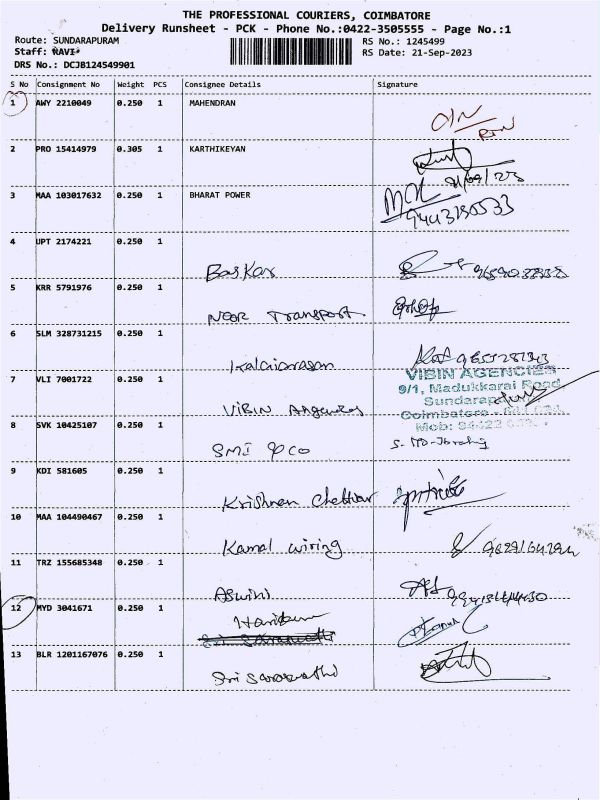 THE PROFESSIONAL COURIERS, COIMBATORE
Delivery Runsheet - PCK - Phone No.:0422-3505555 - Page No.:1
Route: SUNDARAPURAM RS No.: 1245499
Staff: RAVI RS Date: 21-Sep-2023
DRS No.: DCJB124549901
S No Consignment No Weight PCS Consignee Details Signature
1 AWY 2210049 0.250 1 MAHENDRAN
2 PRO 15414979 0.305 1 KARTHIKEYAN
3 MAA 103017632 0.250 1 BHARAT POWER
4 UPT 2174221 0.250 1
Baskar
5 KRR 5791976 0.250 1
NOOR Transport
6 SLM 328731215 0.250 1
Kalaiarasan
7 VLI 7001722 0.250 1
VIBIN AGENCIES
9/1, Madukkarai Road
ViBIN Angencies
8 SVK 10425107 0.250 1
SMI & CO
9 KDI 581605 0.250 1
Krishnan Chettiar
10 MAA 104490467 0.250 1
Kamal wiring
11 TRZ 155685348 0.250 1
Aswini
12 MYD 3041671 0.250 1
13 BLR 1201167076 0.250 1
Sri Saraswathi